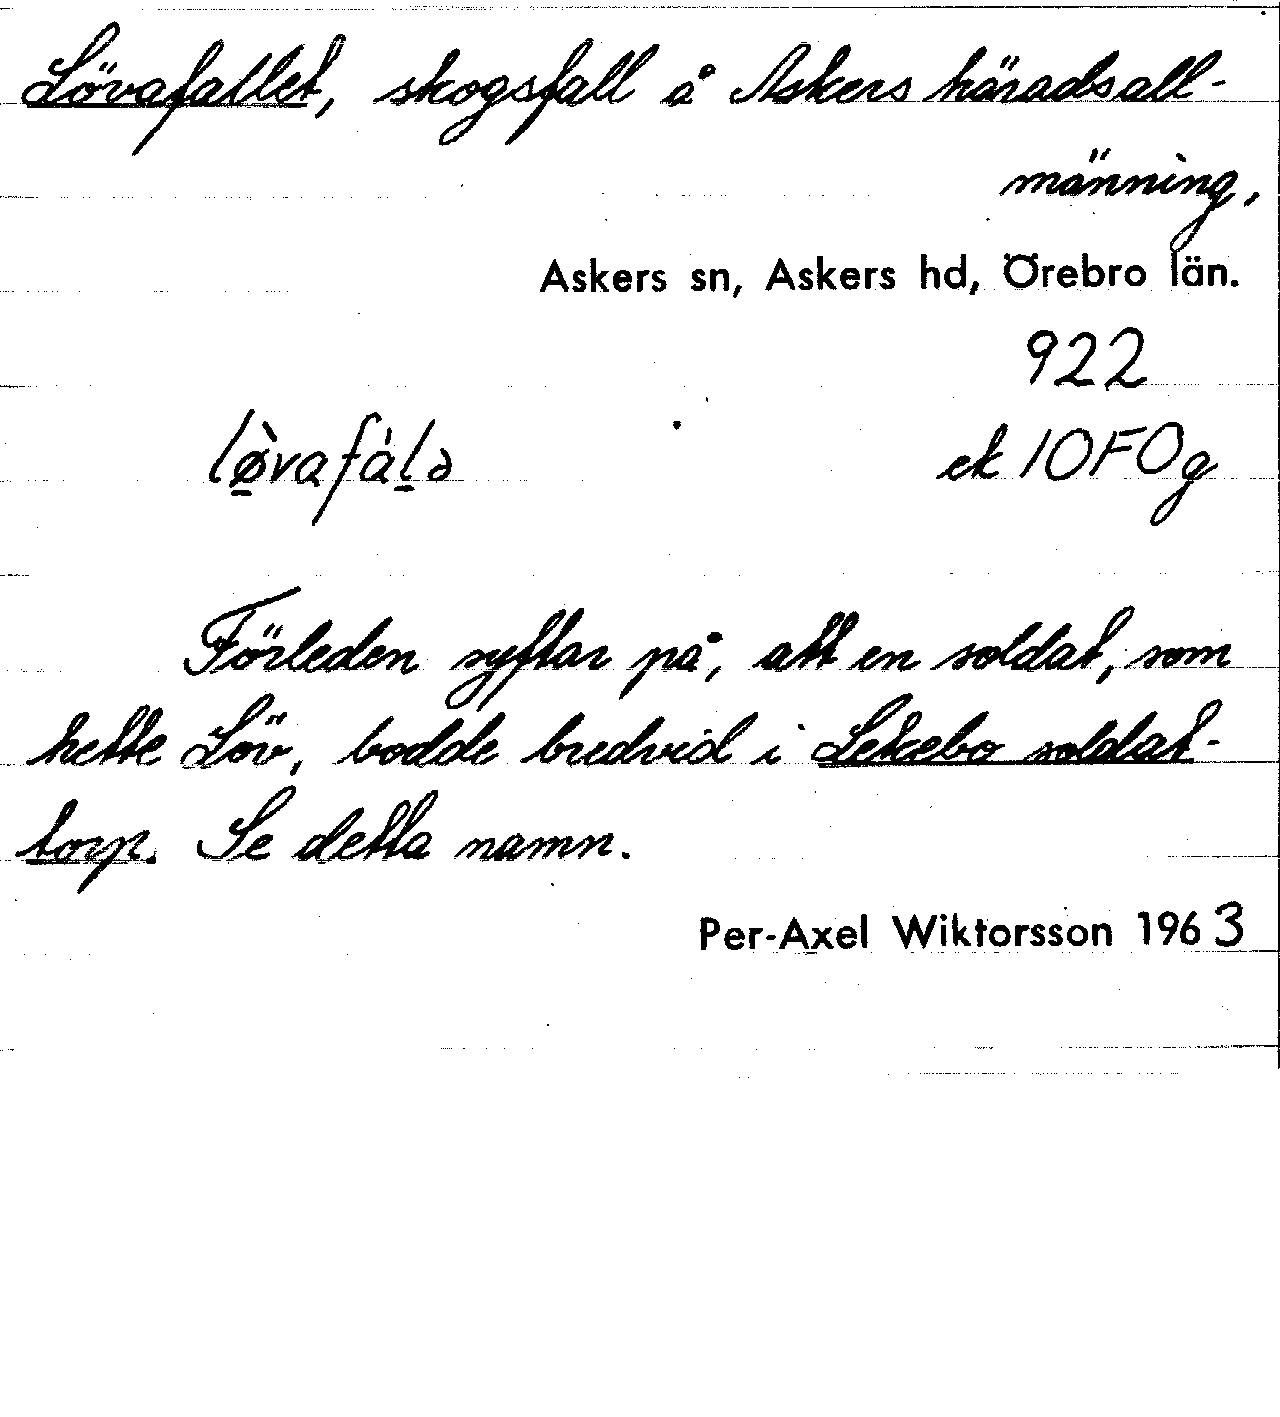 Lövafallet, skogsfall å Askers häradsall-
männing,
Askers sn, Askers hd, Örebro län.
922
lø̀vafálə
ek 10F0g
Förleden syftar på, att en soldat, som
hette Löv, bodde bredvid i Lekebo soldat-
torp. Se detta namn.
Per-Axel Wiktorsson 1963